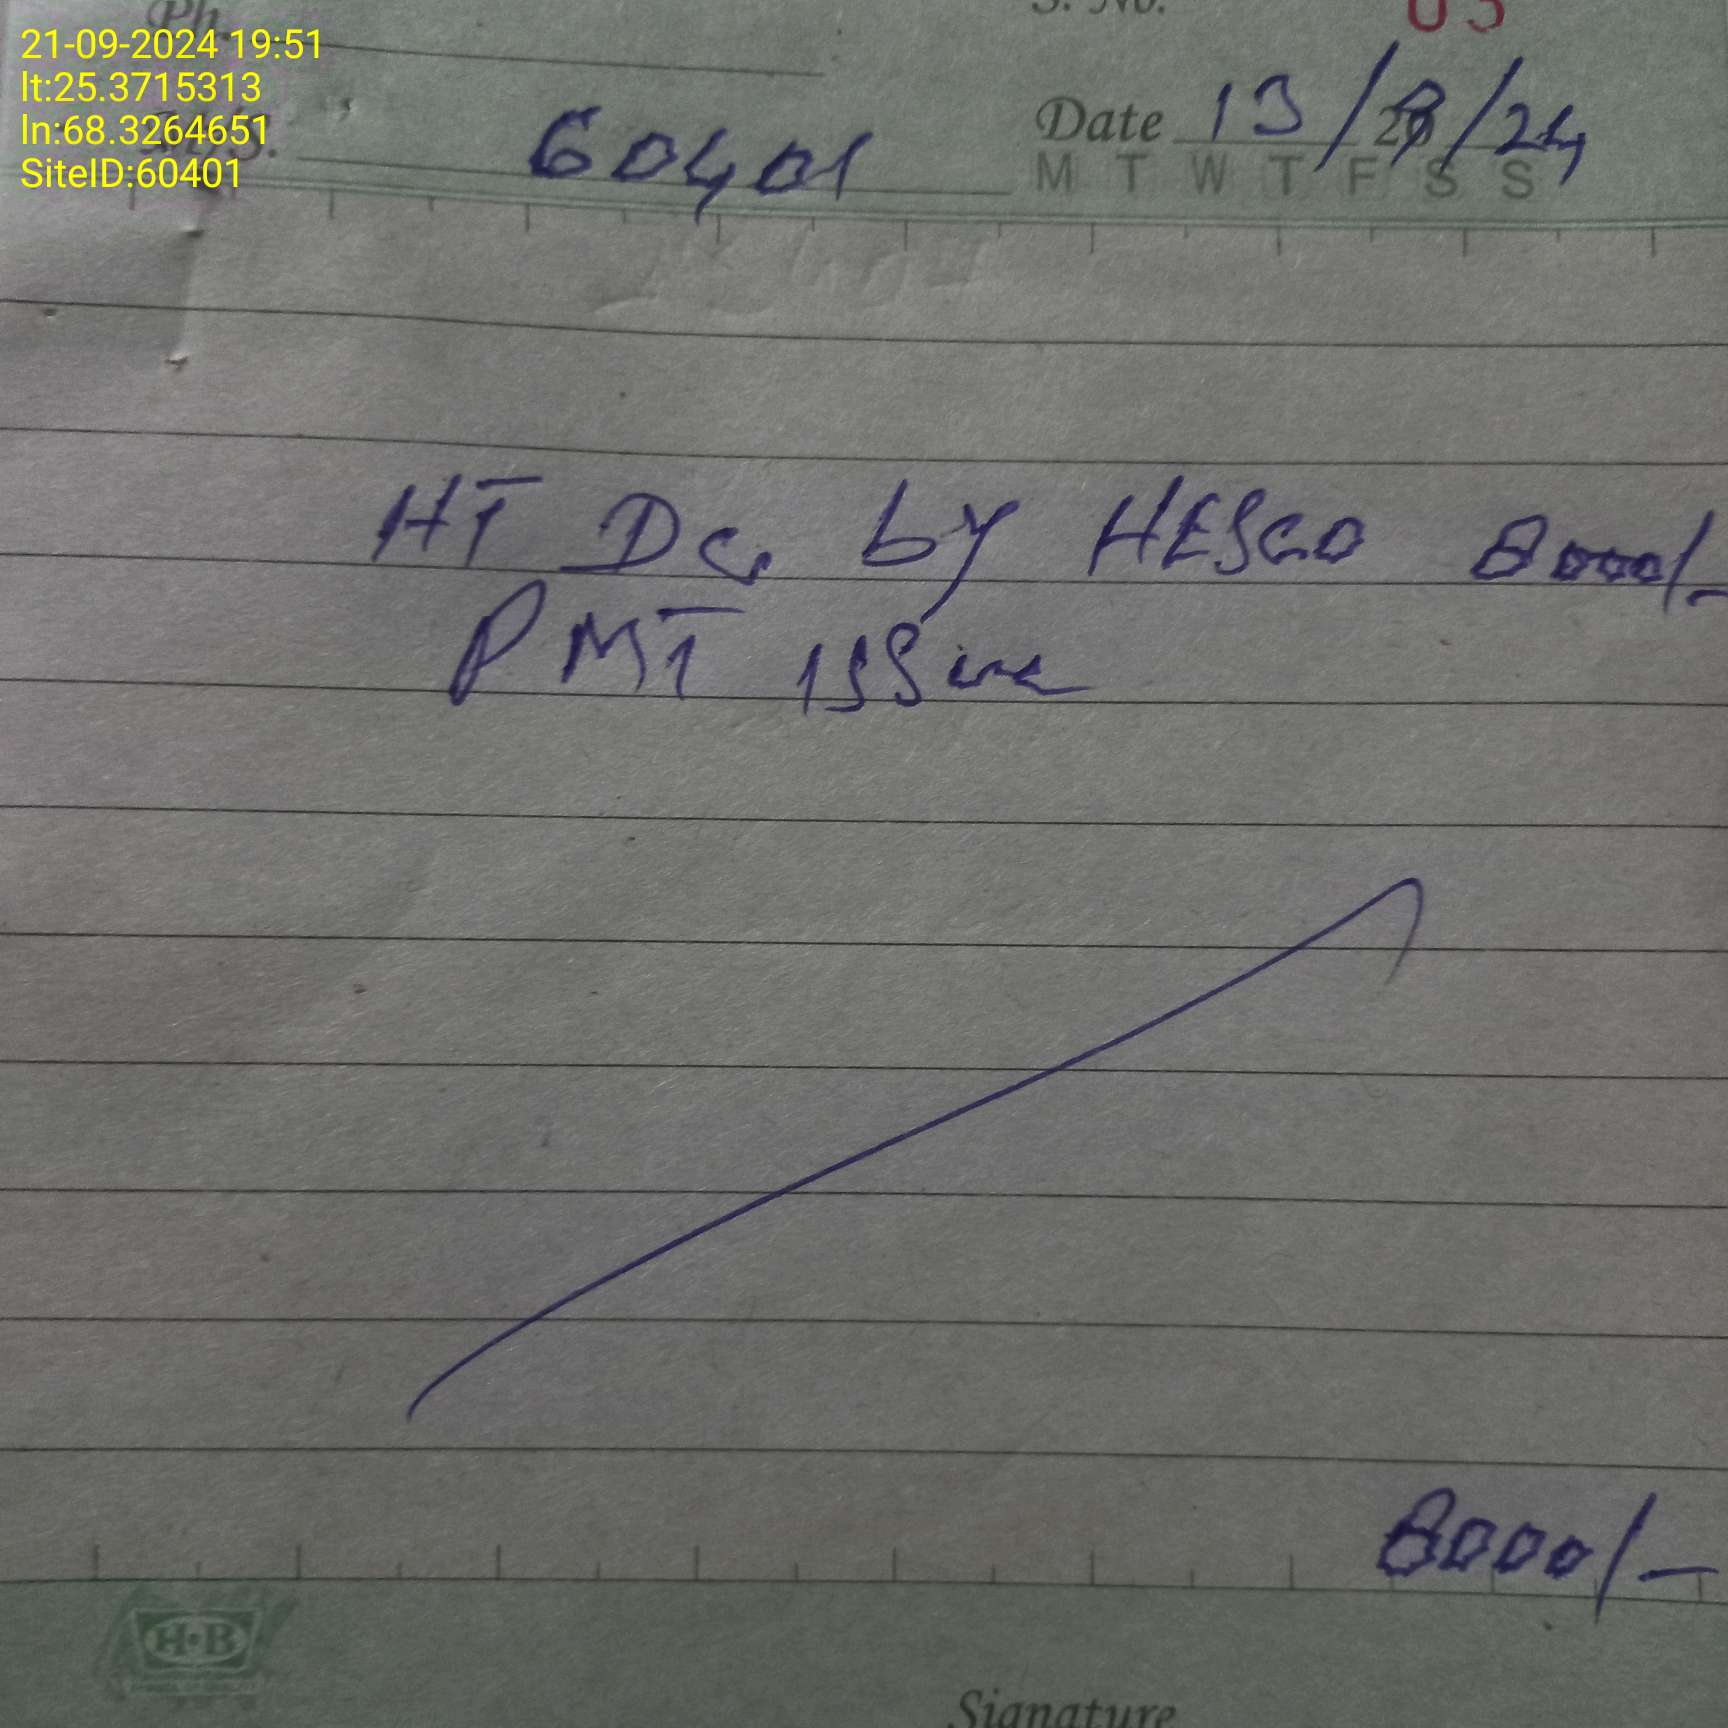 Ph.
S. No. 03
21-09-2024 19:51
lt:25.3715313
ln:68.3264651
SiteID:60401
60401
Date 13/8/24
M T W T F S S
HT DC by HESCO 8000/-
PMT issue
8000/-
H·B
Signature